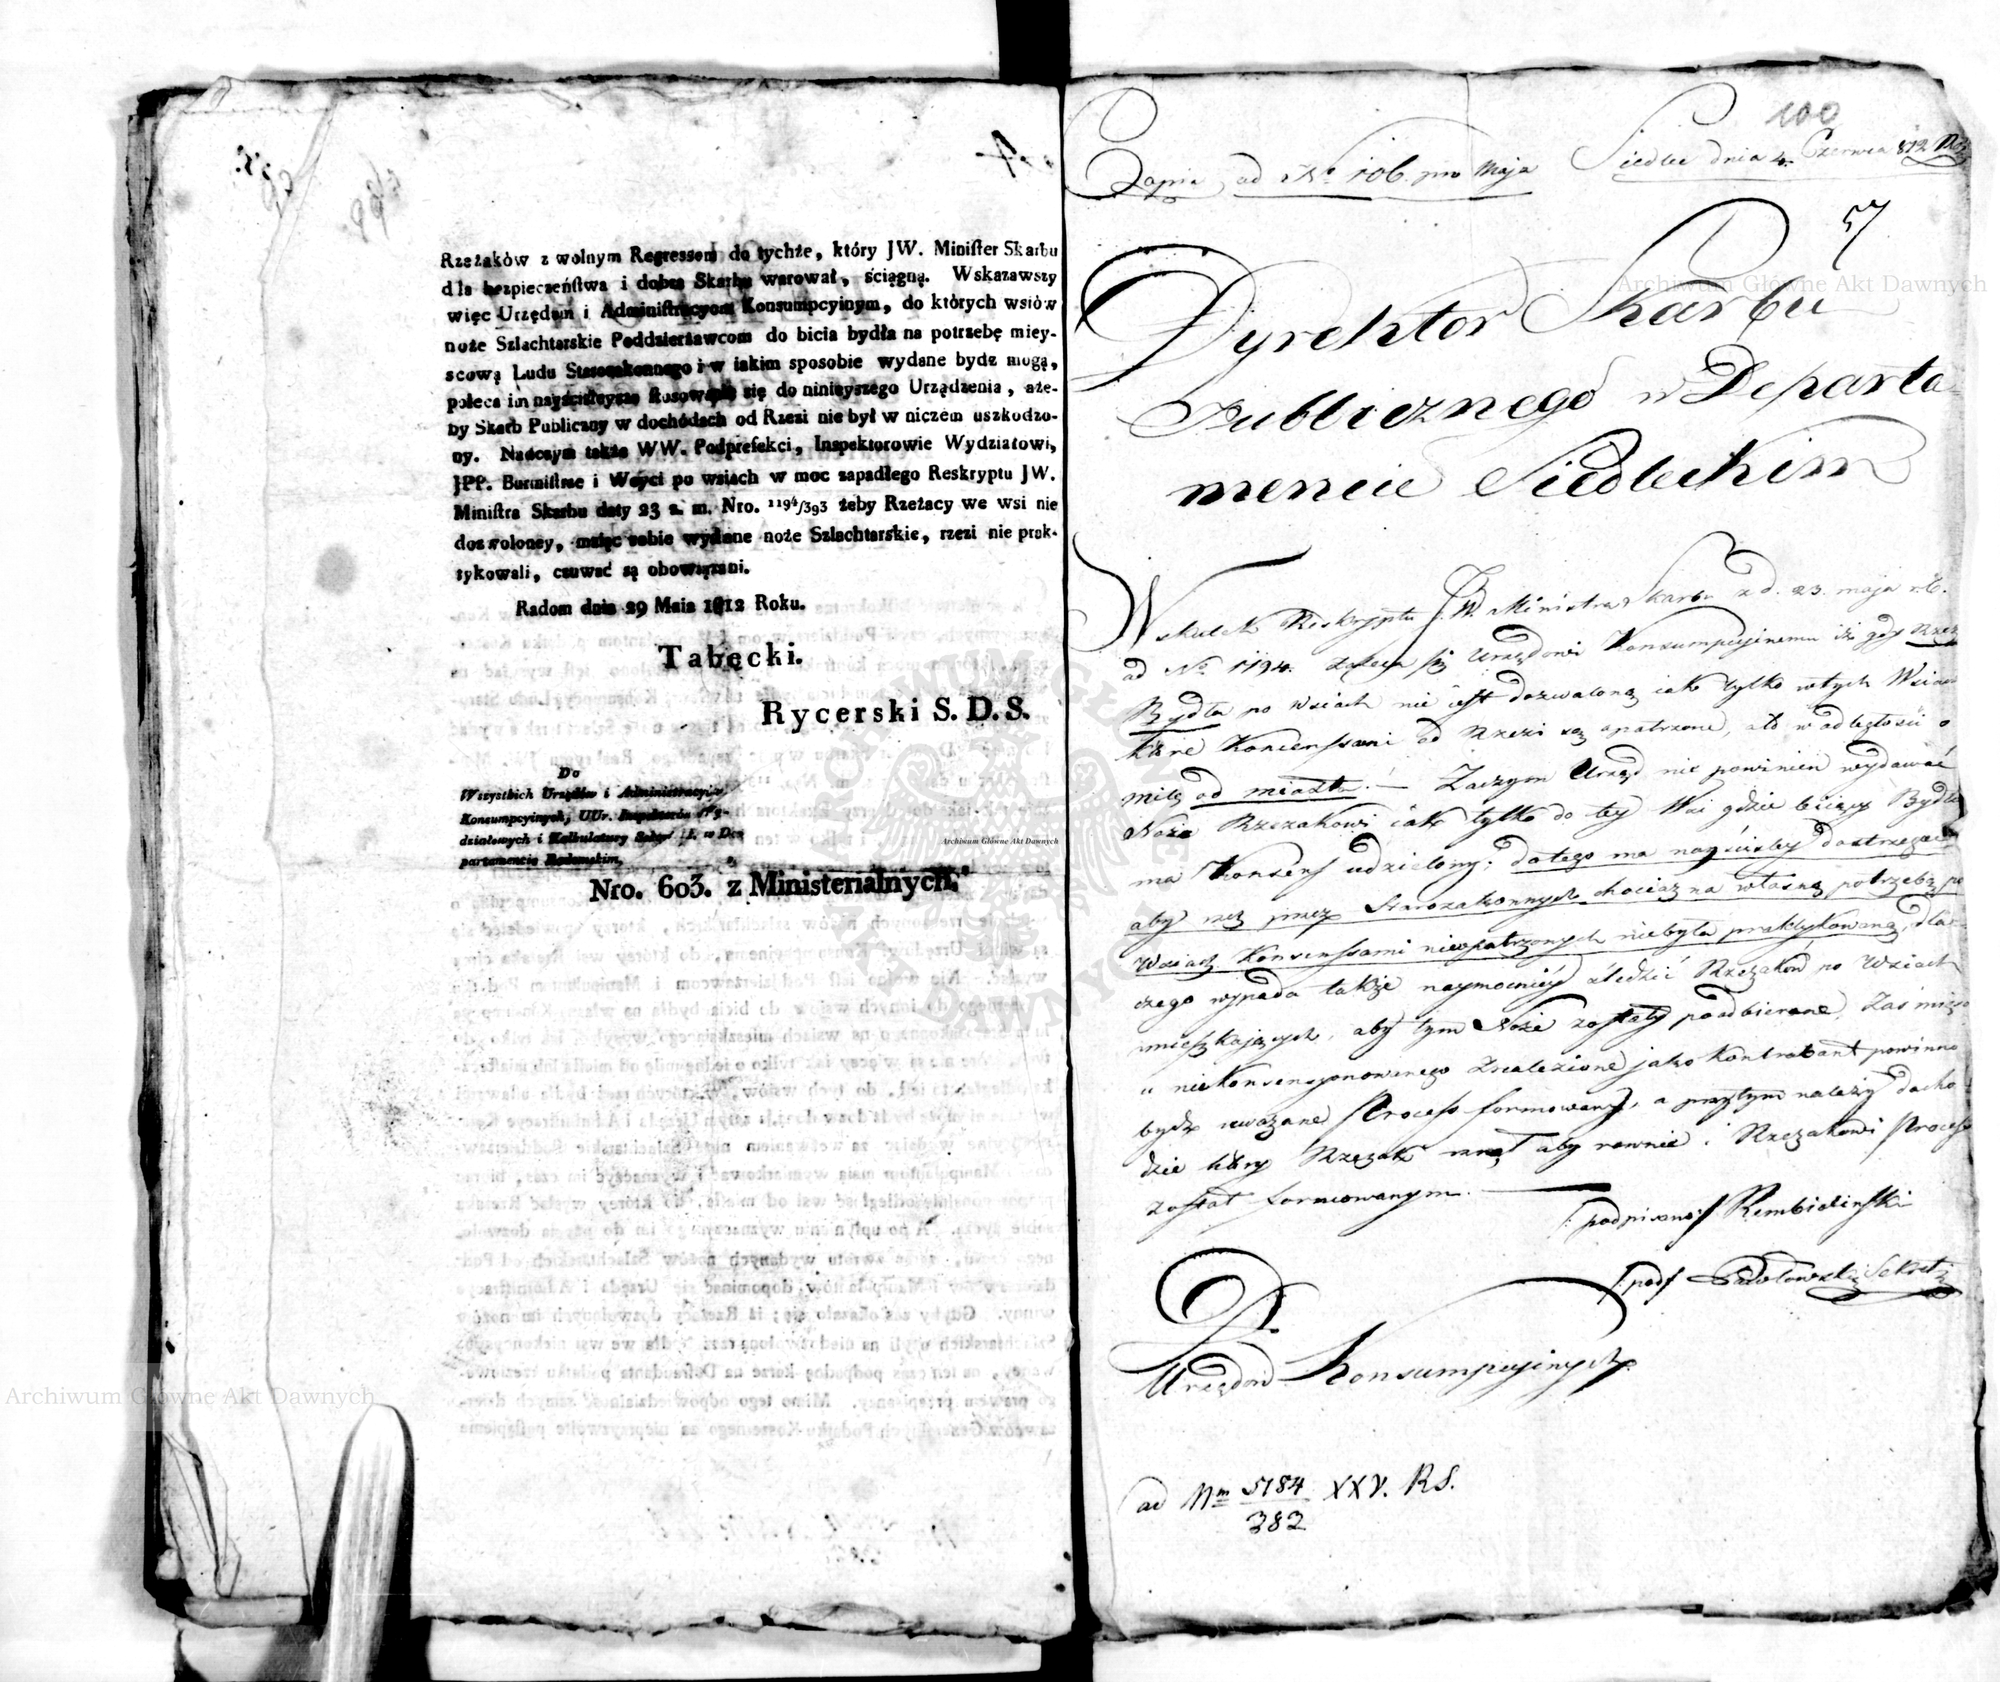 Rzezaków z wolnym Regressem do tychże, który JW. Minister Skarbu
dla bezpieczeństwa i dobra Skarbu warował, ściągną. Wskazawszy
więc Urzędom i Administracyom Konsumpcyinym, do których wsiów
noże Szlachtarskie Poddzierżawcom do bicia bydła na potrzebę miey-
scową Ludu Starozakonnego i w iakim sposobie wydane bydź mogą,
poleca im nayściśleysze stosowanie się do ninieyszego Urządzenia, aże-
by Skarb Publiczny w dochodach od Rzezi nie był w niczem uszkodzo-
ny. Nadczym także WW. Podprefekci, Inspektorowie Wydziałowi,
JPP. Burmistrze i Woyci po wsiach w moc zapadłego Reskryptu JW.
Ministra Skarbu daty 23 a. m. Nro. 1194/393 żeby Rzezacy we wsi nie
dozwoloney, maiąc sobie wydane noże Szlachtarskie, rzezi nie prak-
tykowali, czuwać są obowiązani.
Radom dnia 29 Maia 1812 Roku.
Tabęcki.
Rycerski S. D. S.
Do
Wszystkich Urzędów i Administracyiów
Konsumpcyinych, UUr. Inspektorów Wy-
działowych i Kalkulatury
partamencie Radomskim,
Nro. 603. z Ministerialnych.
100
Kopia ad Nr 106. pro Maja Siedlce dnia 4. Czerwca 812
57
Dyrektor Skarbu
Publicznego w Departa
mencie Siedleckim
Wskutek Reskryptu J.W. Ministra Skarbu z d. 23. maja r.b.
ad Nr 1194. zaleca się Urzędowi Konsumpcyinemu iż gdy Rzeź
Bydła po wsiach nie iest dozwoloną iak tylko w tych Wsiach
które Konsensami od Rzezi są opatrzone, a to w odległości o
milę od miasta. — Zaczym Urząd nie powinien wydawać
Noża Rzezakowi iak tylko do tey Wsi gdzie biiący Bydło
ma Konsens udzielony; do tego ma nayściśley dostrzegać
aby rzeź przez Starozakonnych chociaż na własną potrzebę po
Wsiach Konsensami nieopatrzonych niebyła praktykowaną, dla
czego wypada także naymocniey śledzić Rzezaków po Wsiach
mieszkaiących, aby tym Noże zostały poodbierane, Zaś mięso
u niekonsensyonowanego znalezione jako kontrabant powinno
bydź uważane Process formowany, a przytym należy docho
dzić który Rzezak rznął aby rownie i Rzezakowi Process
został formowanym. —
/: podpisano :/ Rembieliński
/: pod :/ Pawłowski Sekret:
Do
Urzędów Konsumpcyinych
ad Nrm 5184/382 XXV. R S.
Archiwum Główne Akt Dawnych
Archiwum Główne Akt Dawnych
Archiwum Główne Akt Dawnych
ARCHIWUM GŁÓWNE AKT DAWNYCH